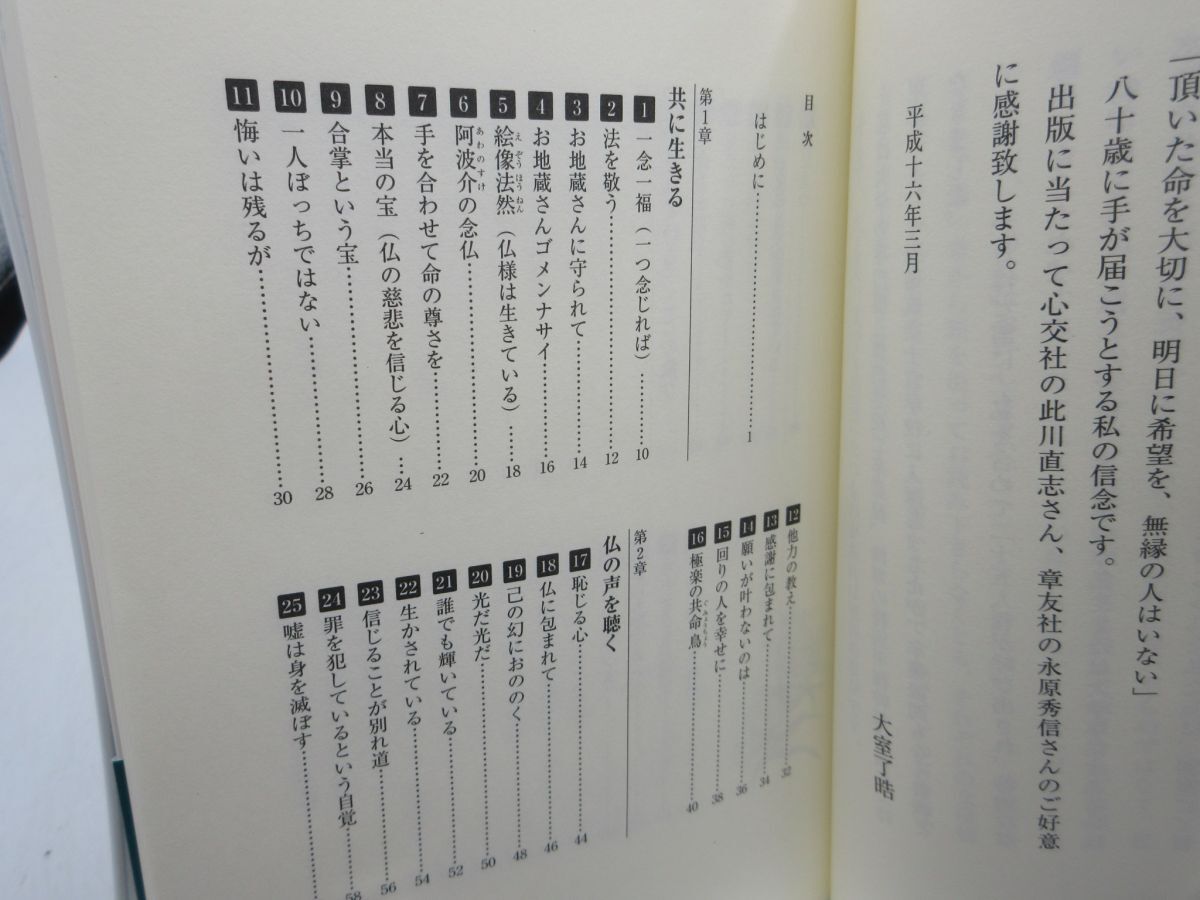 「頂いた命を大切に、明日に希望を、無縁の人はいない」
八十歳に手が届こうとする私の信念です。
出版に当たって心交社の此川直志さん、章友社の永原秀信さんのご好意
に感謝致します。
平成十六年三月
大室了晧
目次
はじめに……………1
第1章
共に生きる
1 一念一福(一つ念じれば)……10
2 法を敬う……12
3 お地蔵さんに守られて……14
4 お地蔵さんゴメンナサイ……16
5 絵像法然(仏様は生きている)……18
えぞうほうねん
6 阿波介の念仏……20
あわのすけ
7 手を合わせて命の尊さを……22
8 本当の宝(仏の慈悲を信じる心)…24
9 合掌という宝……26
10 一人ぼっちではない……28
11 悔いは残るが……30
12 他力の教え……32
13 感謝に包まれて……34
14 願いが叶わないのは……36
15 回りの人を幸せに……38
16 極楽の共命鳥……40
ぐみょうちょう
第2章
仏の声を聴く
17 恥じる心……44
18 仏に包まれて……46
19 己の幻におののく……48
20 光だ光だ……50
21 誰でも輝いている……52
22 生かされている……54
23 信じることが別れ道……56
24 罪を犯しているという自覚……58
25 嘘は身を滅ぼす……